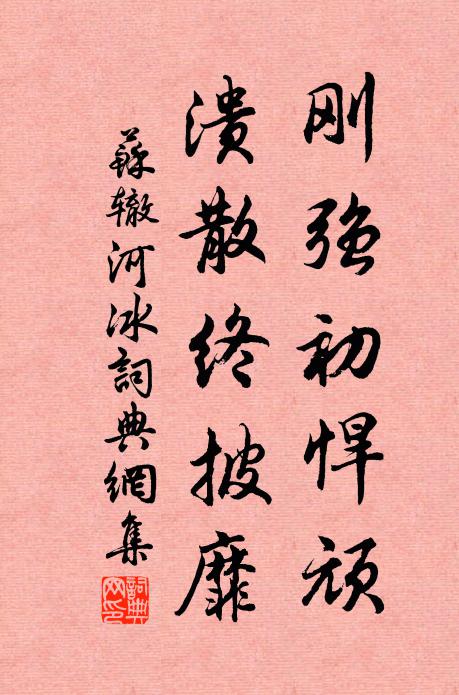 刚强初悍顽
溃散终披靡
蘇辙河冰詞典網集
詞典网印